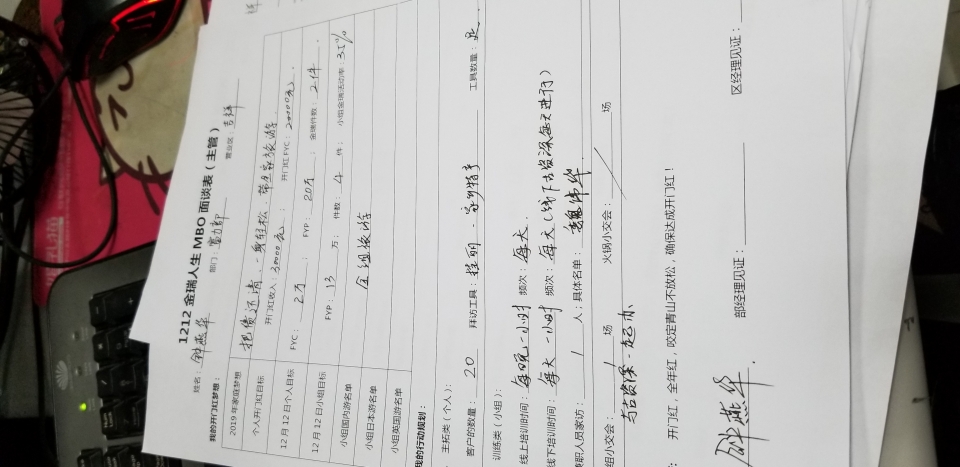 1212 金瑞人生 MBO 面谈表（主管）
姓名：钟燕华 部门： 营业区：吉祥
我的开门红梦想：
2019 年家庭梦想 把债还清，一身轻松，带全家旅游
个人开门红目标 开门红收入：30000元； 开门红 FYC：20000元；
12月12日个人目标 FYC：2万； FYP：20万； 金瑞件数：2件．
12月12日小组目标 FYP：13万； 件数：4件； 小组金瑞活动率：35%
小组国内游名单 全组旅游
小组日本游名单
小组英国游名单
我的行动规划：
主拓类（个人）：
客户的数量：20 拜访工具： 工具数量：足．
训练类（小组）：
线上培训时间：每晚一小时 频次：每天．
线下培训时间：每天一小时 频次：每天（线下古资深每天进行）
兼职人员家访：1人；具体名单：魏伟华．
组小交会：1场 火锅小交会：/场
与古资深一起办
开门红，全年红，咬定青山不放松，确保达成开门红！
钟燕华． 部经理见证： 区经理见证：